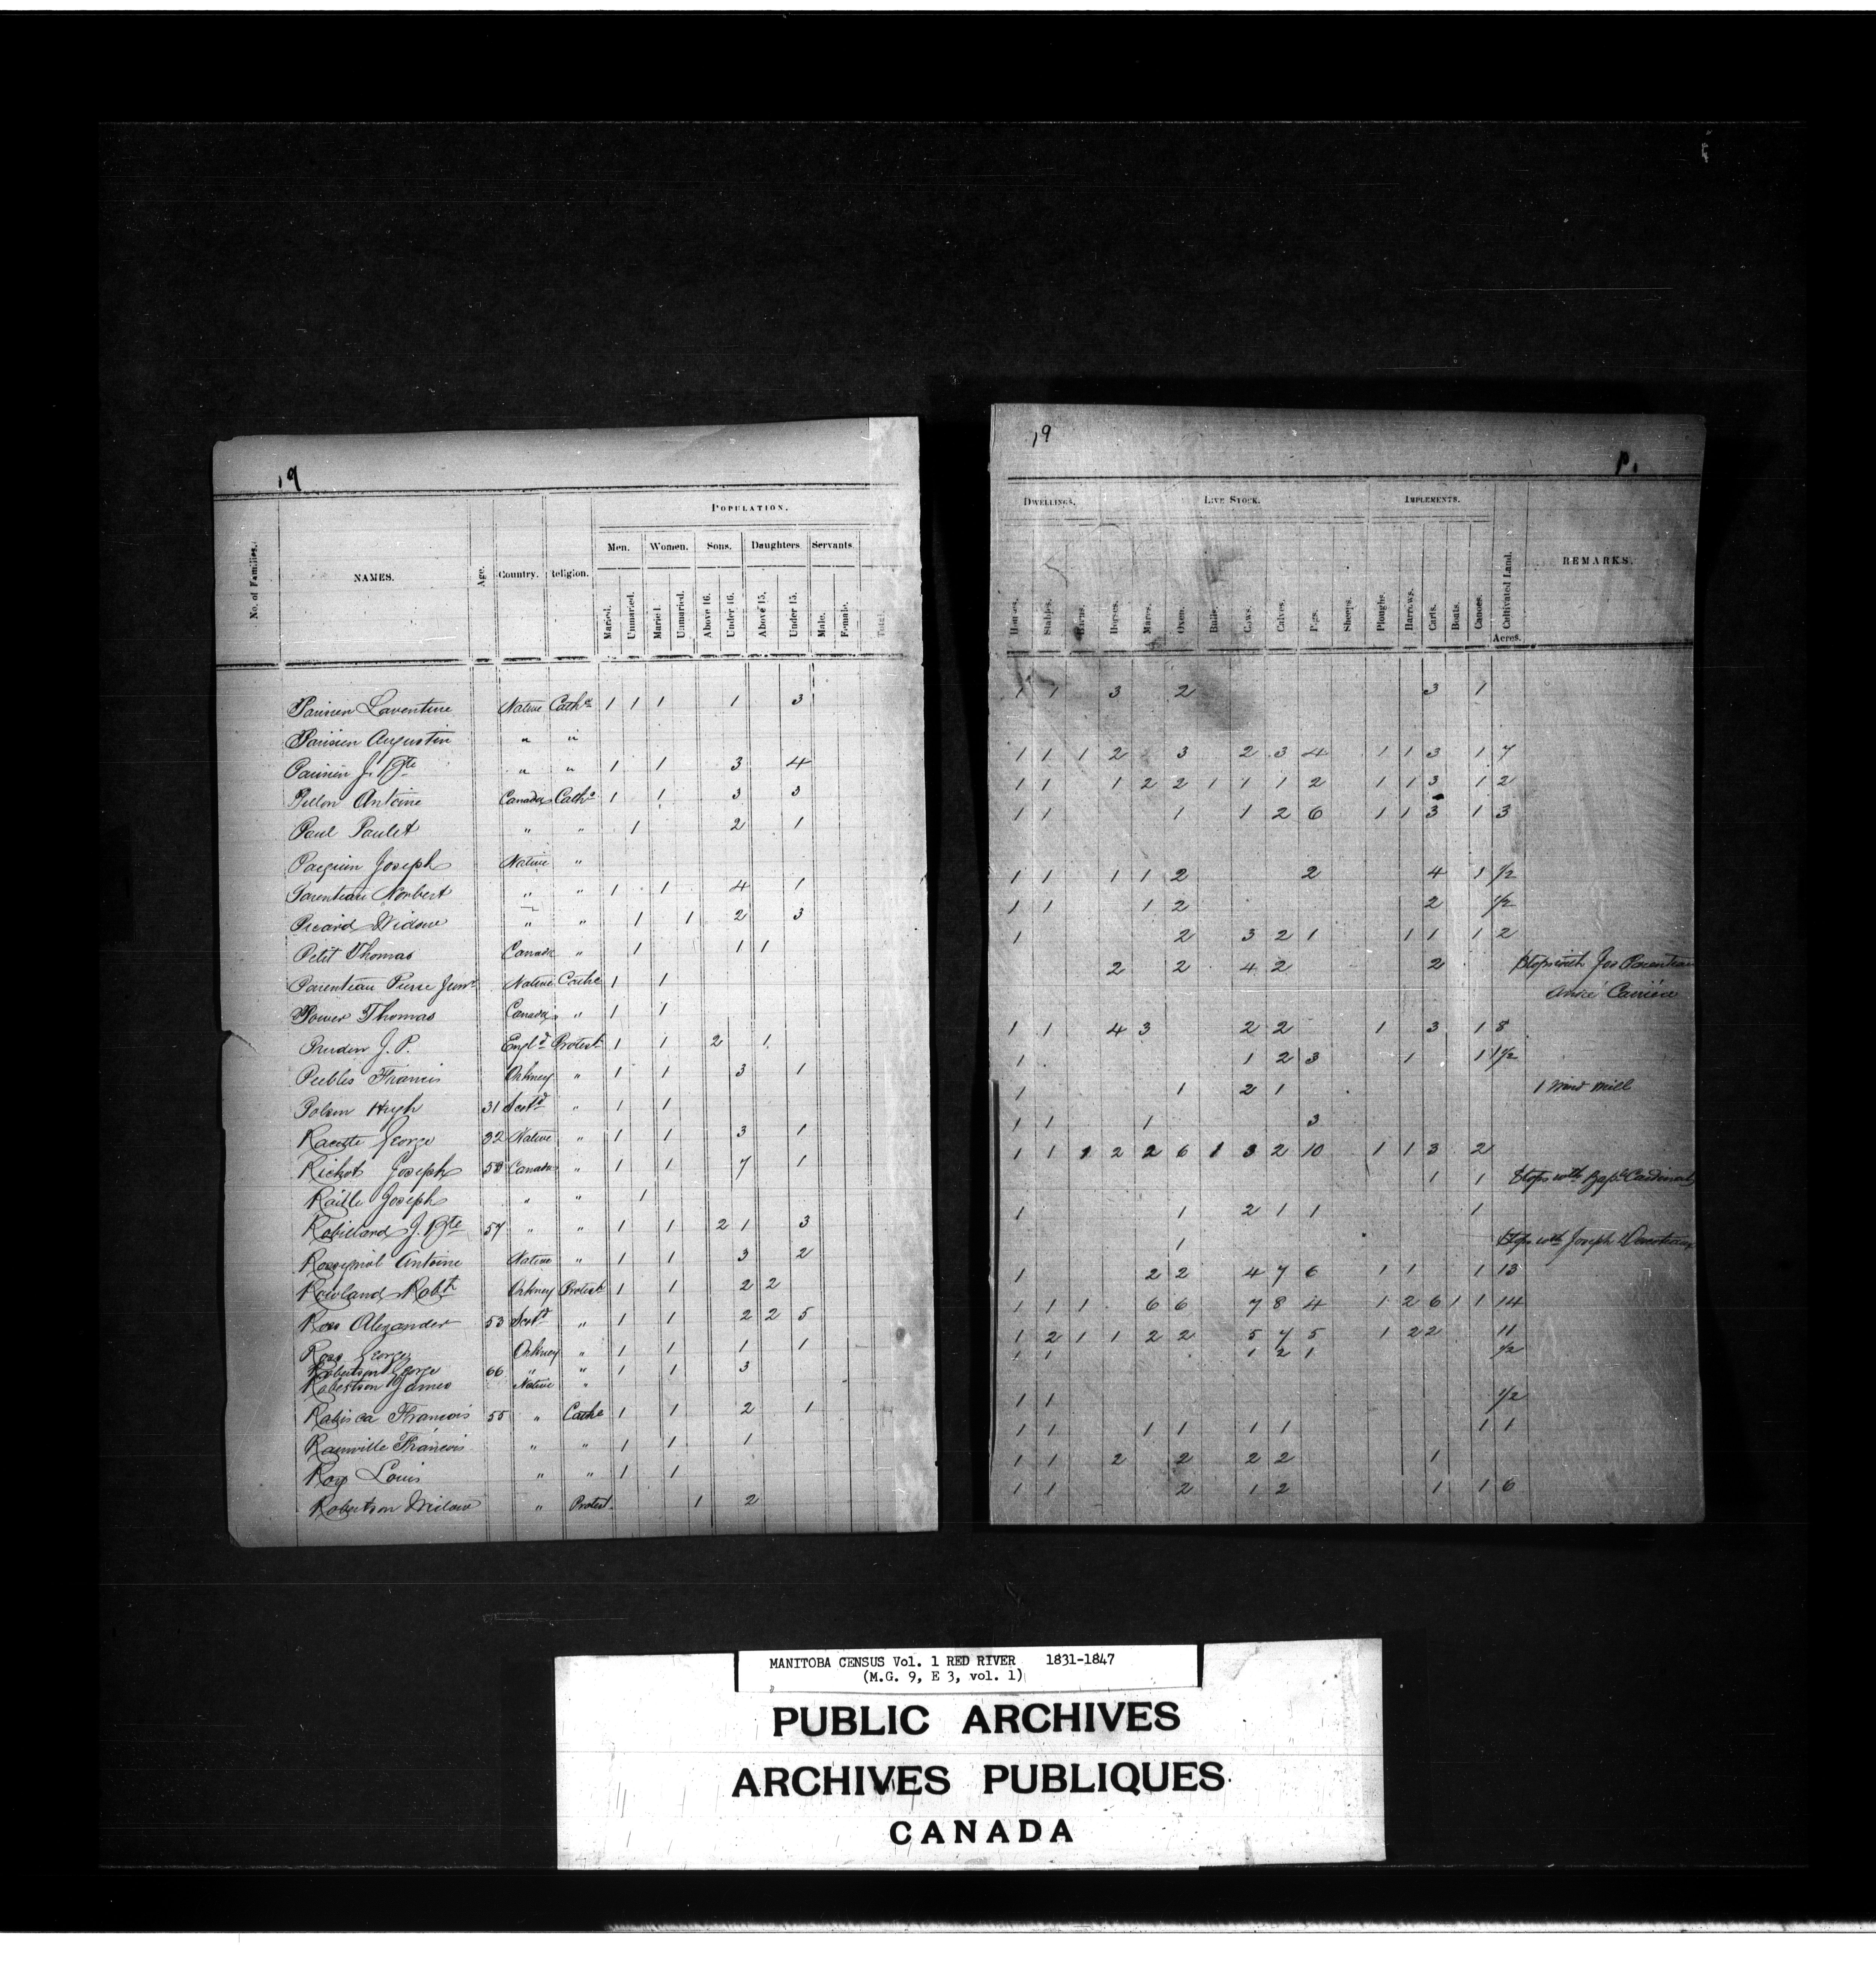 19
POPULATION.
Men. Women. Sons. Daughters Servants.
No. of Families. NAMES. Age. Country. Religion. Maried. Unmaried. Maried. Unmaried. Above 16. Under 16. Above 15. Under 15. Male. Female. Total.
Parisien Laventure Native Cath 1 1 1 1 3
Parisien Augustin " "
Parisien J. Bte " " 1 1 3 4
Pillon Antoine Canada Cath 1 1 3 3
Paul Paulet " " 1 2 1
Paquin Joseph Native "
Parenteau Norbert " " 1 1 4 1
Picard Widow " " 1 1 2 3
Petit Thomas Canada " 1 1 1
Parenteau Pierre Junr Native Cathc 1 1
Power Thomas Canada " 1 1
Pruden J. P. Engld Protest 1 1 2 1
Peebles Francis Orkney " 1 1 3 1
Polson Hugh 31 Scotd " 1 1
Racette George 32 Native " 1 1 3 1
Richot Joseph 53 Canada " 1 1 7 1
Raille Joseph " " 1
Robillard J. Bte 57 " " 1 1 2 1 3
Antoine Native " 1 1 3 2
Rowland Robt Orkney Protest 1 1 2 2
Ross Alexander 53 Scotd " 1 1 2 2 5
Ross George Orkney " 1 1 1 1
Robertson George 66 " " 1 1 3
Robertson James Native "
Rabisca Francois 55 " Cathc 1 1 2 1
Rainville Francois " " 1 1 1
Roy Louis " " 1 1
Robertson Widow " Protest. 1 2
19
P.
DWELLINGS. LIVE STOCK. IMPLEMENTS.
Houses. Stables. Barns. Horses. Mares. Oxen. Bulls. Cows. Calves. Pigs. Sheeps. Ploughs. Harrows. Carts. Boats. Canoes. Cultivated Land. Acres. REMARKS.
1 1 3 2 3 1
1 1 1 2 3 2 3 4 1 1 3 1 7
1 1 1 2 2 1 1 1 2 1 1 3 1 2
1 1 1 1 2 6 1 1 3 1 3
1 1 1 1 2 2 4 1 1/2
1 1 1 2 2 1/2
1 2 3 2 1 1 1 1 2
2 2 4 2 2 Stops with Jos Parenteau
André Carrière
1 1 4 3 2 2 1 3 1 8
1 1 2 3 1 1 1 1/2
1 1 2 1 1 Wind Mill
1 1 1 3
1 1 1 2 2 6 1 3 2 10 1 1 3 2
1 1 Stops with Bapt Cardinal
1 1 2 1 1 1
1 Stops with Joseph
1 2 2 4 7 6 1 1 1 13
1 1 1 6 6 7 8 4 1 2 6 1 1 14
1 2 1 1 2 2 5 7 5 1 2 2 11
1 1 1 2 1 1/2
1 1 1/2
1 1 1 1 1 1 1 1
1 1 2 2 2 2 1
1 1 2 1 2 1 1 6
MANITOBA CENSUS Vol. 1 RED RIVER 1831-1847
(M.G. 9, E 3, vol. 1)
PUBLIC ARCHIVES
ARCHIVES PUBLIQUES
CANADA